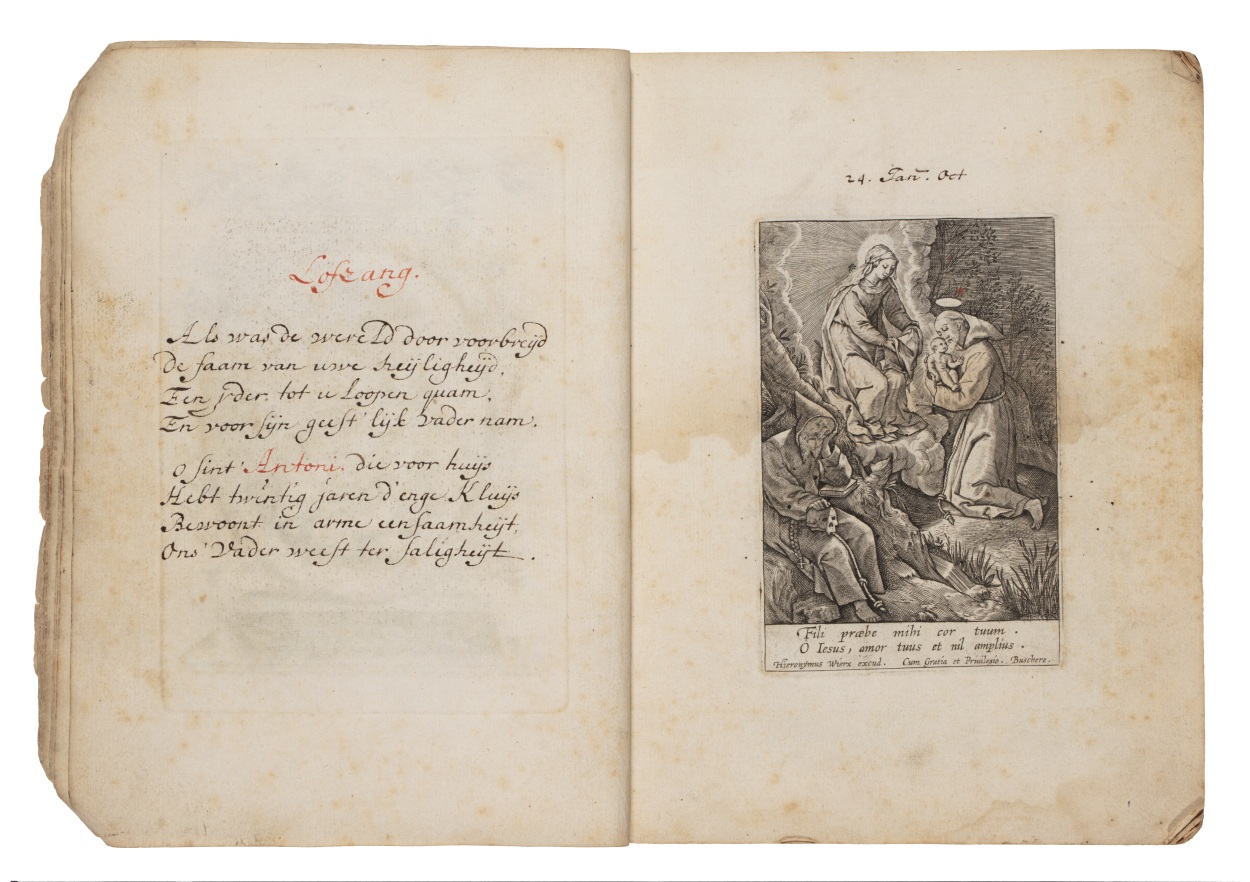 Lofzang.
Als was de wereld door voorbreyd
De faam van uwe heyligheyd,
Een yder tot u Loopen quam,
En voor sijn geest'lijk Vader nam.
O sint Antoni, die voor huijs
Hebt twintig jaren d'enge Kluijs
Bewoont in arme eensaamheijt,
Ons' Vader weest ter saligheijt.
24. Jan. Oct
Fili præbe mihi cor tuum.
O Iesus, amor tuus et nil amplius.
Hieronymus Wierx excud. Cum Gratia et Privilegio. Buschere.